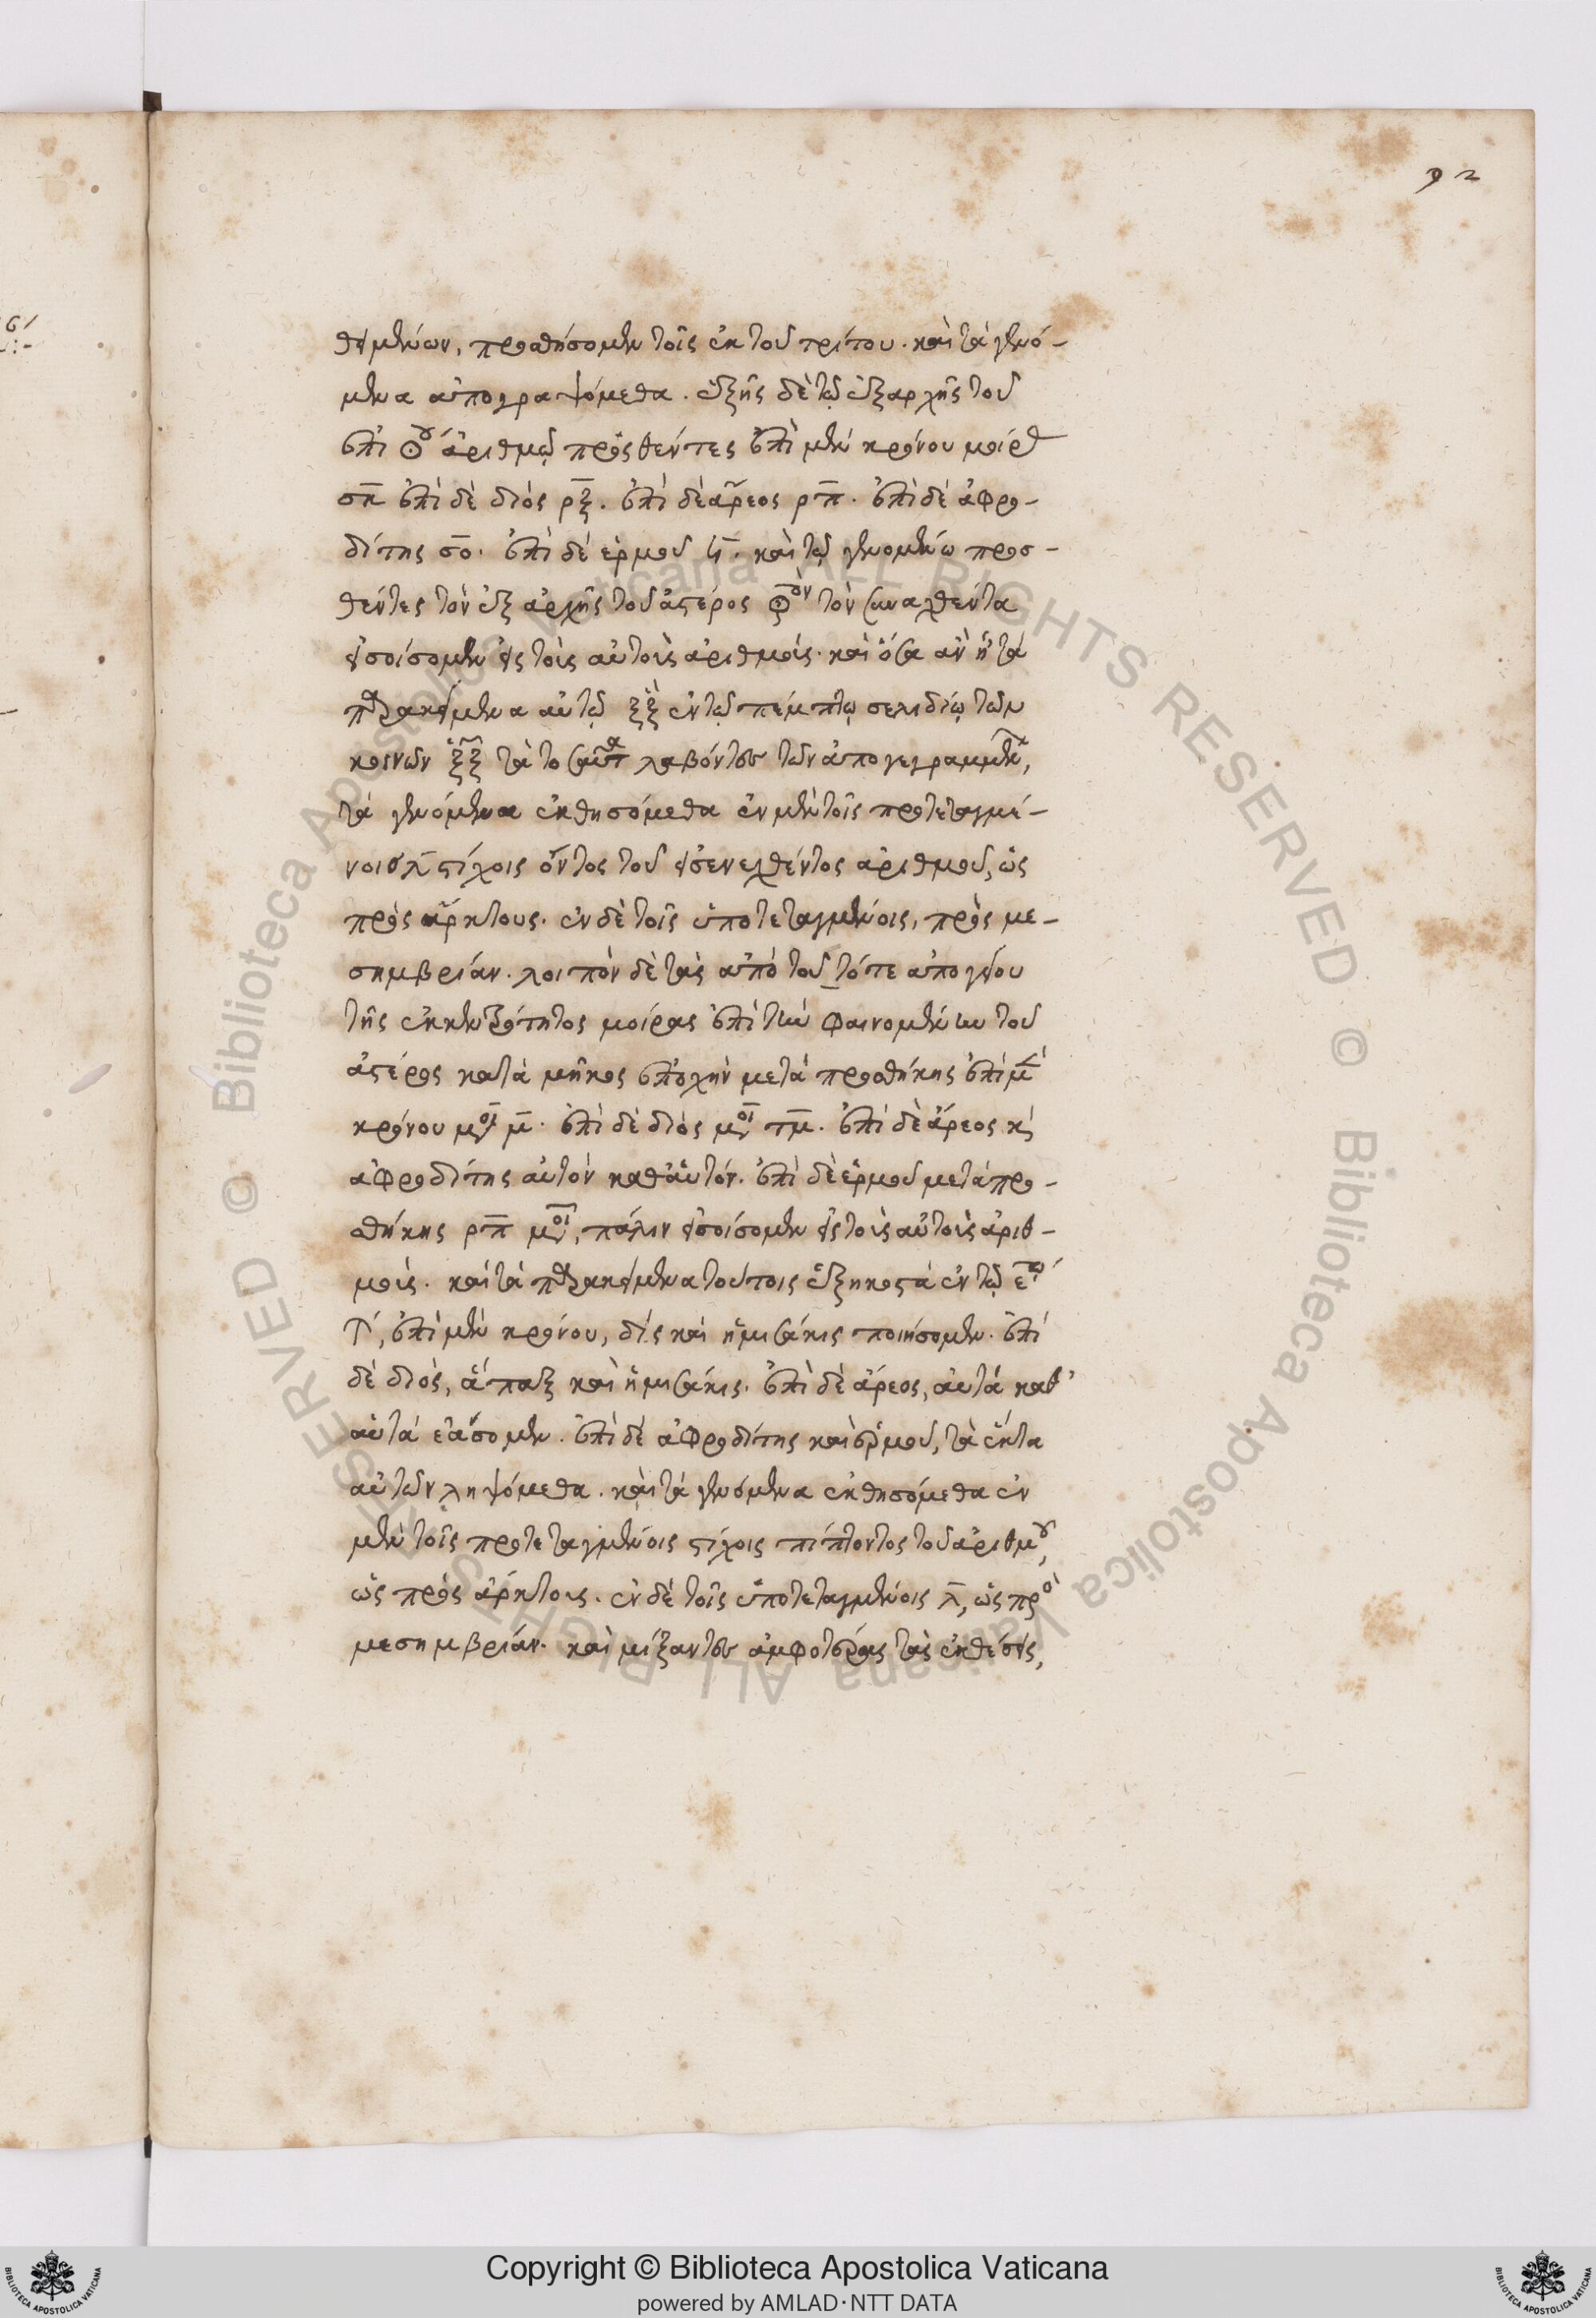 92
θειμένων, προσθήσομεν τοῖς ἐκ τοῦ τρίτου. καὶ τὰ γενό-
μενα ἀπογραψόμεθα. ἑξῆς δὲ τῷ ἐξαρχῆς τοῦ
ἐπι αριθμῷ προσθέντες ἐπὶ μὲν κρόνου
σπ ἐπὶ δὲ διός ρξ. ἐπὶ δὲ ἄρεος ρπ. ἐπὶ δὲ ἀφρο-
δίτης σο. ἐπὶ δὲ ἑρμοῦ ϟ. καὶ τῷ γενομένω προσ-
θέντες τὸν ἐξ ἀρχῆς τοῦ ἀστέρος τὸν συναχθέντα
εἰσοίσομεν εἰς τοὺς αὐτοὺς ἀριθμούς. καὶ ὅσα ἂν ᾖ τὰ
παρακείμενα αὐτῷ ξξ ἐν τῷ πέμπτῳ σελιδίῳ τῶν
κοινῶν ξξ τὰ λαβόντες τῶν ἀπογεγραμμέν,
τὰ γενόμενα ἐκθησόμεθα ἐν μὲν τοῖς προτεταγμέ-
νοις λ στίχοις ὄντος τοῦ εἰσενεχθέντος ἀριθμοῦ, ὡς
πρὸς ἄρκτους. ἐν δὲ τοῖς ὑποτεταγμένοις, πρὸς με-
σημβρίαν. λοιπὸν δὲ τὰς ἀπὸ τοῦ τότε ἀπογείου
τῆς ἐκκεντρότητος μοίρας ἐπὶ τὴν φαινομένην τοῦ
ἀστέρος κατὰ μῆκος ἐποχὴν μετὰ προσθήκης ἐπὶ μ
κρόνου μοι μ. ἐπὶ δὲ διὸς μοι τμ. ἐπὶ δὲ ἄρεος κ
ἀφροδίτης αὐτὸν καθἁυτόν. ἐπὶ δὲ ἑρμοῦ μετὰ προ-
σθήκης ρπ μοι, πάλιν εἰσοίσομεν εἰς τοὺς αὐτοὺς ἀριθ-
μούς. καὶ τὰ παρακείμενα τούτοις ἑξηκοστὰ ἐν τῷ
ἐπὶ μὲν κρόνου, δὶς καὶ ἡμισάκις ποιήσομεν. ἐπὶ
δὲ διός, ἅπαξ καὶ ἡμισάκις. ἐπὶ δὲ ἄρεος, αὐτὰ καθ'
αὑτὰ ἐάσομεν. ἐπὶ δὲ ἀφροδίτης καὶ ἑρμοῦ, τὰ ἕκτα
αὐτῶν ληψόμεθα. καὶ τὰ γενόμενα ἐκθησόμεθα ἐν
μὲν τοῖς προτεταγμένοις στίχοις πίπτοντος τοῦ ἀριθμοῦ,
ὡς πρὸς ἄρκτους. ἐν δὲ τοῖς ὑποτεταγμένοις λ, ὡς προ
μεσημβρίαν. καὶ μίξαντες ἀμφοτέρας τὰς ἐκθέσεις,
© Biblioteca Apostolica Vaticana ALL RIGHTS RESERVED
© Biblioteca Apostolica Vaticana ALL RIGHTS RESERVED
Copyright © Biblioteca Apostolica Vaticana
powered by AMLAD·NTT DATA
BIBLIOTECA APOSTOLICA VATICANA
BIBLIOTECA APOSTOLICA VATICANA